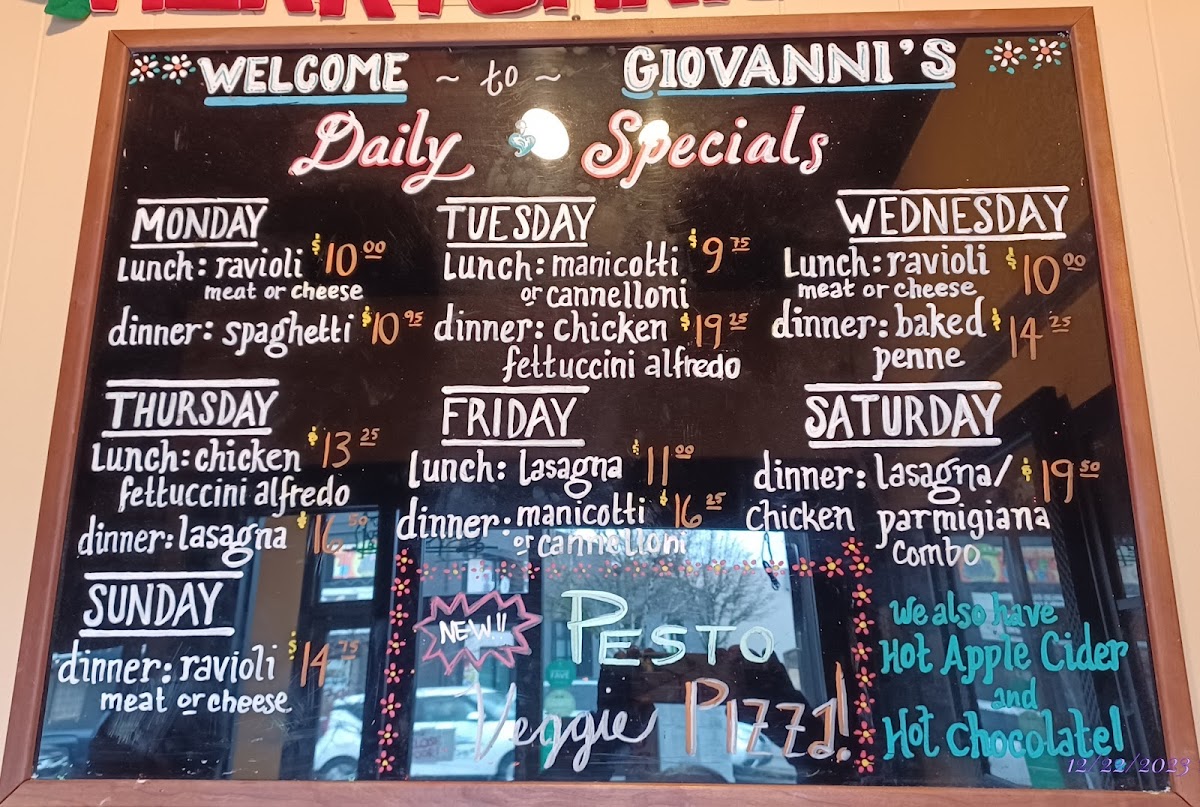 WELCOME ~ to ~ GIOVANNI'S
Daily Specials
MONDAY
Lunch: ravioli $10.00
meat or cheese
dinner: spaghetti $10.95
TUESDAY
Lunch: manicotti $9.75
or cannelloni
dinner: chicken $19.25
fettuccini alfredo
WEDNESDAY
Lunch: ravioli $10.00
meat or cheese
dinner: baked $14.25
penne
THURSDAY
Lunch: chicken $13.25
fettuccini alfredo
dinner: lasagna $16.50
FRIDAY
Lunch: lasagna $11.00
dinner: manicotti $16.25
or cannelloni
SATURDAY
dinner: lasagna/ $19.50
chicken parmigiana
combo
SUNDAY
dinner: ravioli $14.75
meat or cheese
NEW!!
PESTO
Veggie Pizza!
We also have
Hot Apple Cider
and
Hot Chocolate!
12/22/2023